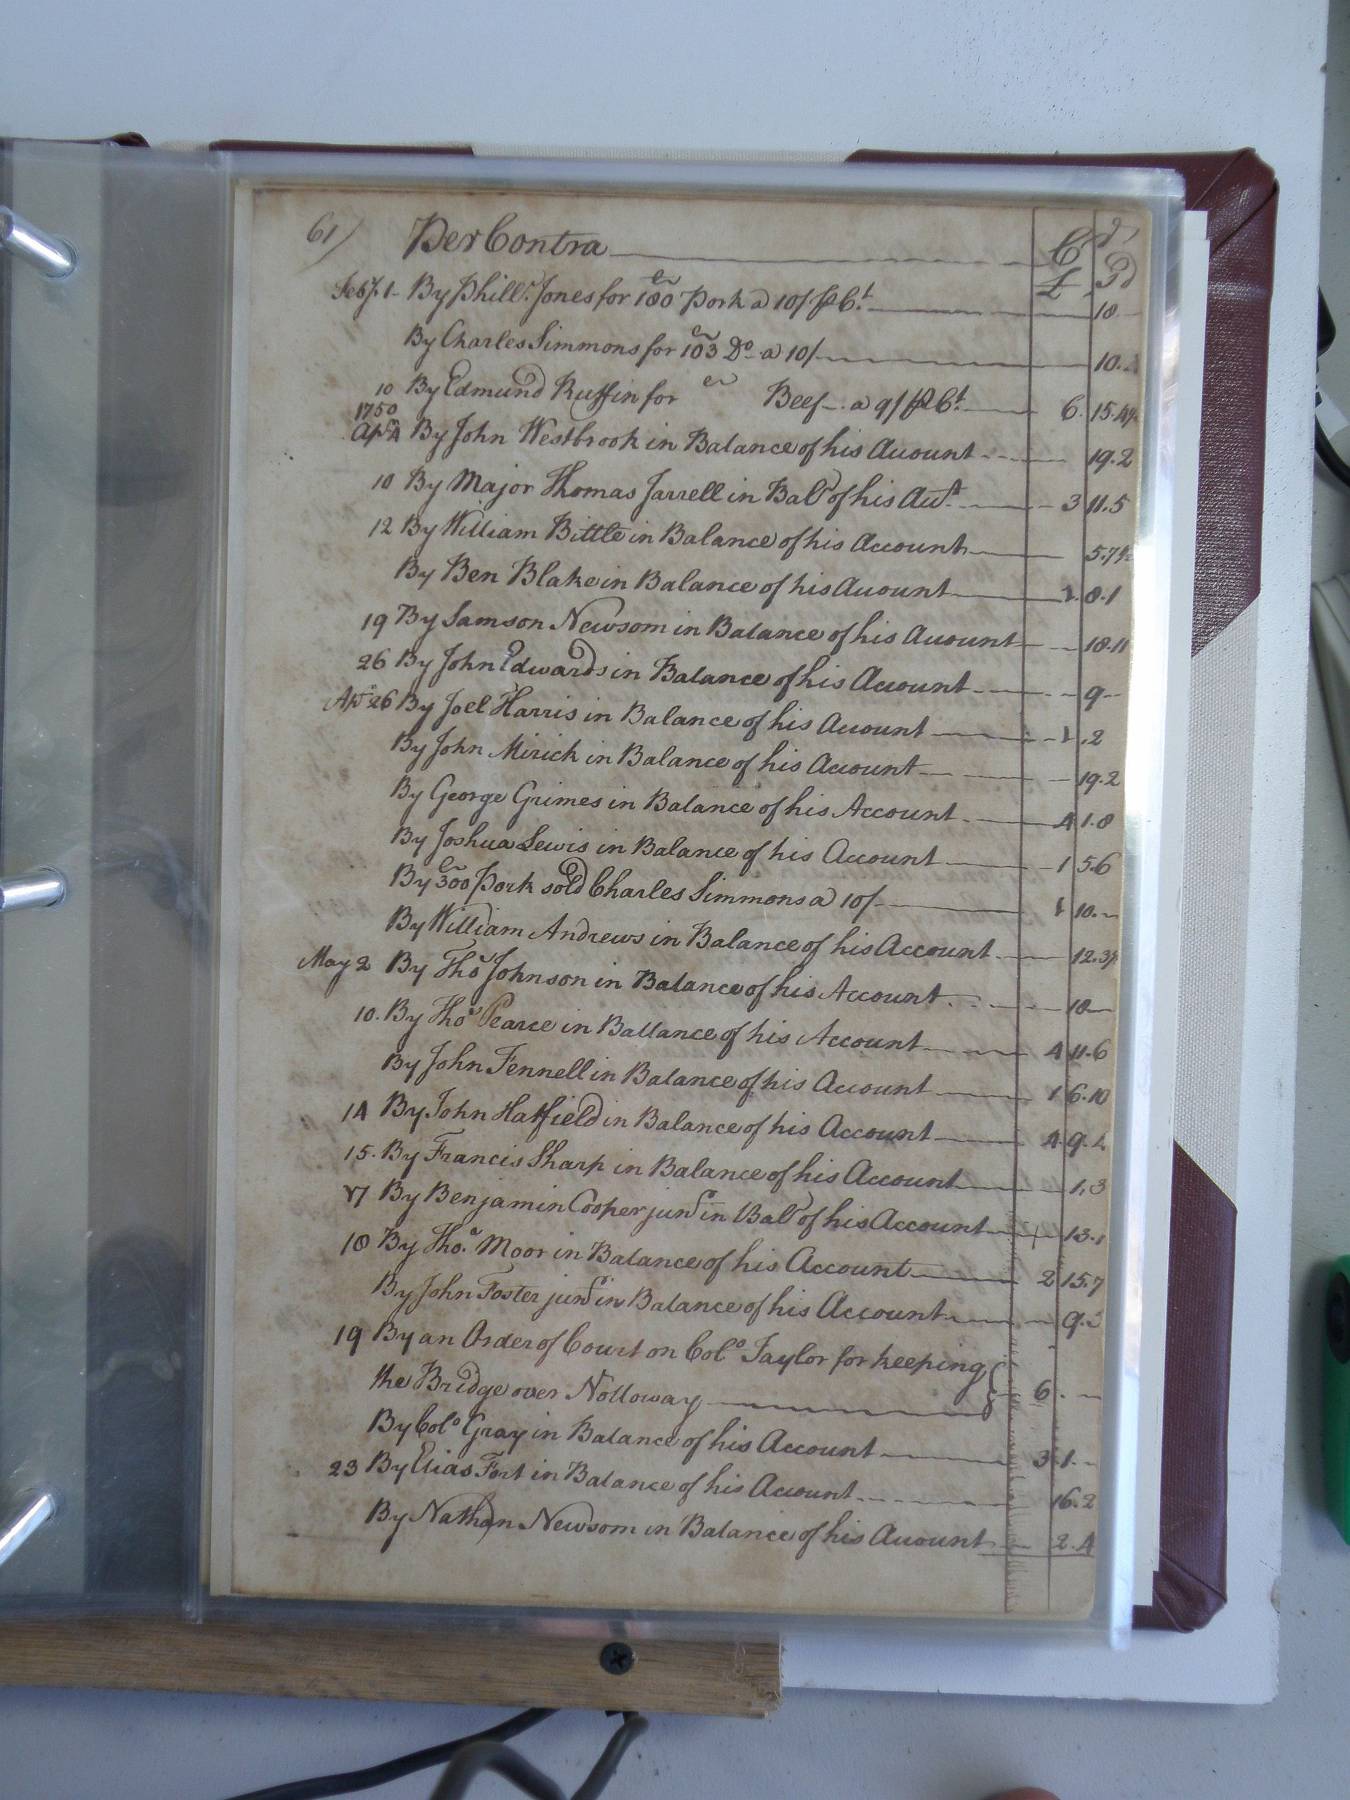 61) Per Contra C.r
£ S d
Feb.y 1 By Phill. Jones for 180 Pork a 10/ p C.t 18
By Charles Simmons for 103 D.o a 10/ 10.
10 By Edmund Ruffin for Beef a 9/ p C.t 6. 15.
1750
Ap.l 4 By John Westbrook in Balance of his Account 19.2
10 By Major Thomas Jarrell in Bal.e of his Acc.t 3 11.5
12 By William Bittle in Balance of his Account 5.7½
By Ben Blake in Balance of his Account 1. 8.1
19 By Samson Newsom in Balance of his Account 18.11
26 By John Edwards in Balance of his Account 9
Ap.l 26 By Joel Harris in Balance of his Account 1 .2
By John Mirick in Balance of his Account 19.2
By George Grimes in Balance of his Account 4 1.8
By Joshua Lewis in Balance of his Account 1 5.6
By 300 Pork sold Charles Simmons a 10/ 1 10.
By William Andrews in Balance of his Account 12.3
May 2 By Tho.s Johnson in Balance of his Account 18
10. By Tho.s Pearce in Ballance of his Account 4 11.6
By John Fennell in Balance of his Account 1 6.10
14 By John Hatfield in Balance of his Account 4 9.
15. By Francis Sharp in Balance of his Account 1.3
17 By Benjamin Cooper jun.r in Bal.e of his Account 13.1
18 By Tho.s Moor in Balance of his Account 2 15.7
By John Foster jun.r in Balance of his Account 9.
19 By an Order of Court on Col.o Taylor for keeping
the Bridge over Nolloway 6.
By Col.o Gray in Balance of his Account 3 1.
23 By Elias Fort in Balance of his Account 16.2
By Nathan Newsom in Balance of his Account 2.4